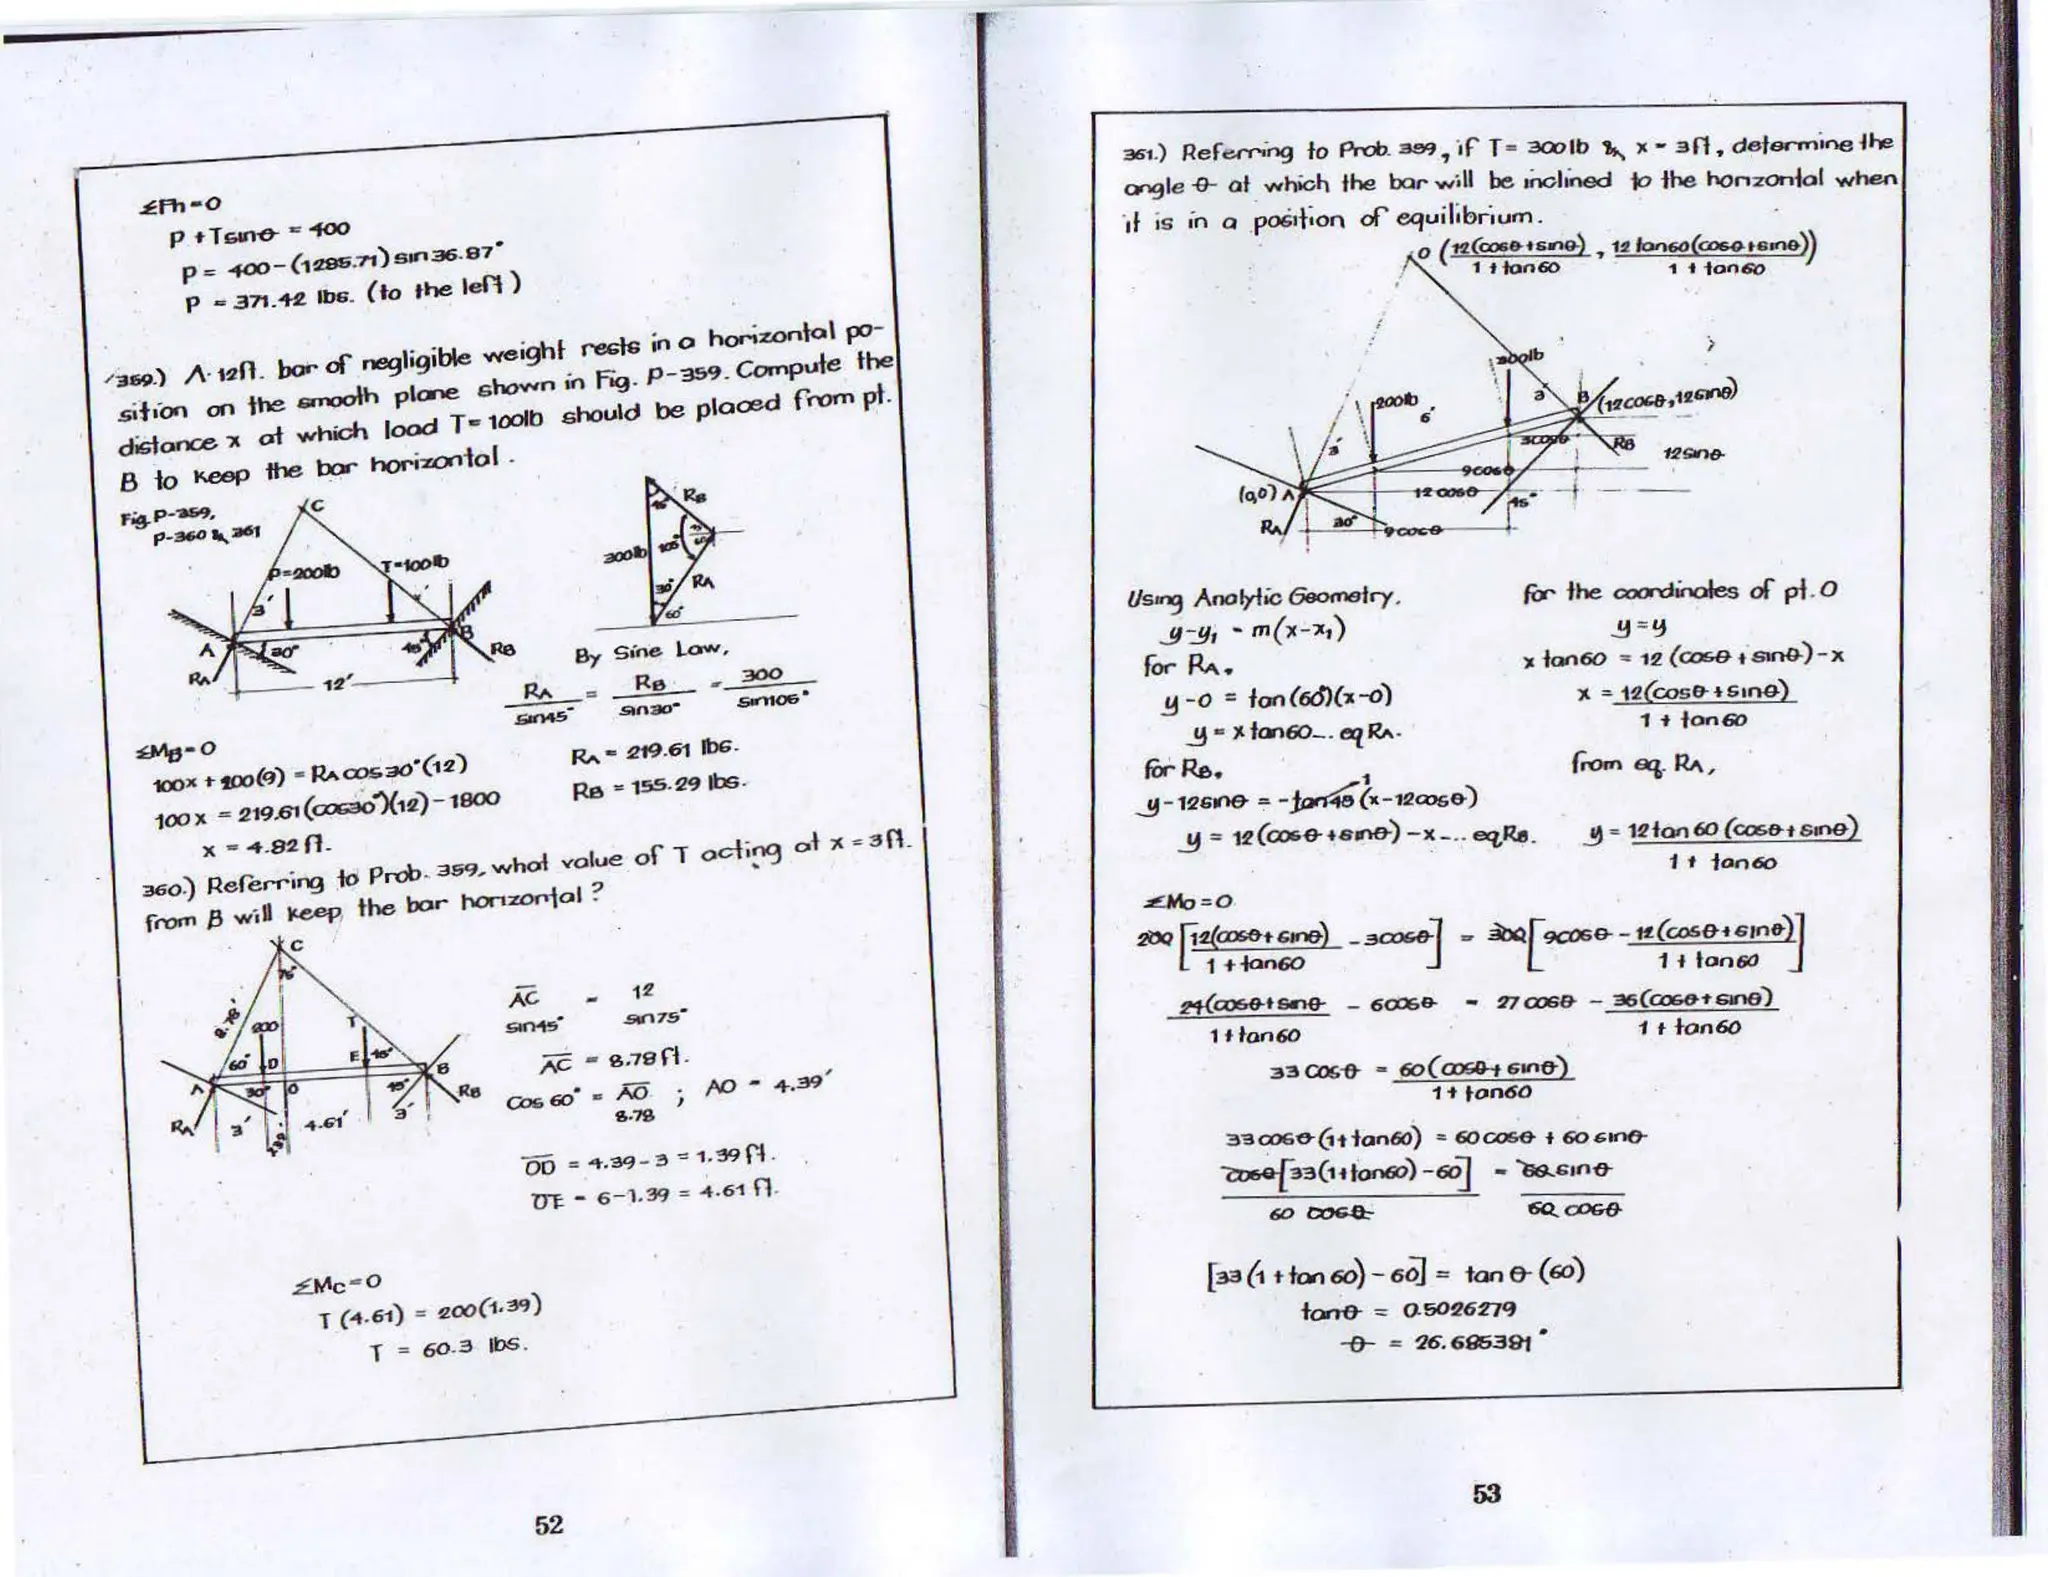 ΣFh=0
P + Tsinθ = 400
P = 400-(1285.71) sin 36.87°
P = 371.42 lbs. (to the left)
359.) A 12ft. bar of negligible weight rests in a horizontal po-
sition on the smooth plane shown in Fig. P-359. Compute the
distance x at which load T= 100lb should be placed from pt.
B to keep the bar horizontal.
Fig. P-359,
P-360 & 361
C
P=200lb
T=100lb
3'
A
30°
45°
B
RA
RB
12'
45°
RB
300lb
105°
30°
RA
60°
By Sine Law,
RA/sin45° = RB/sin30° = 300/sin105°
ΣMB=0
100x + 200(9) = RA cos30°(12)
100x = 219.61(cos30°)(12)-1800
x = 4.82 ft.
RA = 219.61 lbs.
RB = 155.29 lbs.
360.) Referring to Prob. 359, what value of T acting at x = 3ft.
from B will keep the bar horizontal?
C
75°
8.78'
200
T
60°
D
E
45°
A
30°
O
45°
B
RA
RB
3'
4.61'
3'
AC/sin45° = 12/sin75°
AC = 8.78 ft.
Cos 60° = AO/8.78 ; AO = 4.39'
OD = 4.39-3 = 1.39 ft.
OE = 6-1.39 = 4.61 ft.
ΣMc=0
T (4.61) = 200(1.39)
T = 60.3 lbs.
52
361.) Referring to Prob. 359, if T= 300lb & x = 3ft, determine the
angle θ at which the bar will be inclined to the horizontal when
it is in a position of equilibrium.
O (12(cosθ+sinθ)/1+tan60 , 12tan60(cosθ+sinθ)/1+tan60)
300lb
200lb
3'
6'
3'
B
(12cosθ,12sinθ)
3cosθ
RB
12sinθ
9cosθ
(0,0) A
12cosθ
45°
RA
30°
9cosθ
Using Analytic Geometry.
y-y₁ = m(x-x₁)
for RA.
y-0 = tan(60°)(x-0)
y = xtan60... eq RA.
for RB.
y-12sinθ = -tan45 (x-12cosθ)
1
y = 12(cosθ+sinθ)-x... eq RB.
for the coordinates of pt. O
y=y
x tan60 = 12 (cosθ+sinθ)-x
x = 12(cosθ+sinθ)/1+tan60
from eq. RA,
y = 12tan60 (cosθ+sinθ)/1+tan60
ΣMo=0
200[12(cosθ+sinθ)/1+tan60 - 3cosθ] = 300[9cosθ - 12(cosθ+sinθ)/1+tan60]
24(cosθ+sinθ/1+tan60 - 6cosθ = 27cosθ - 36(cosθ+sinθ)/1+tan60
33cosθ = 60(cosθ+sinθ)/1+tan60
33cosθ(1+tan60) = 60cosθ + 60sinθ
cosθ[33(1+tan60)-60]/60cosθ = 60sinθ/60cosθ
[33(1+tan60)-60] = tanθ (60)
tanθ = 0.5026279
θ = 26.685381°
53